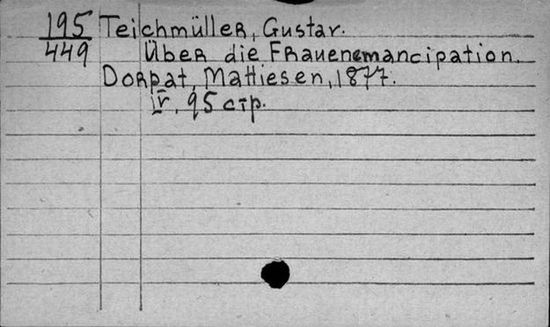 195 Teichmüller, Gustav.
449 Über die Frauenemancipation.
Dorpat, Mattiesen, 1877.
IV, 95 стр.